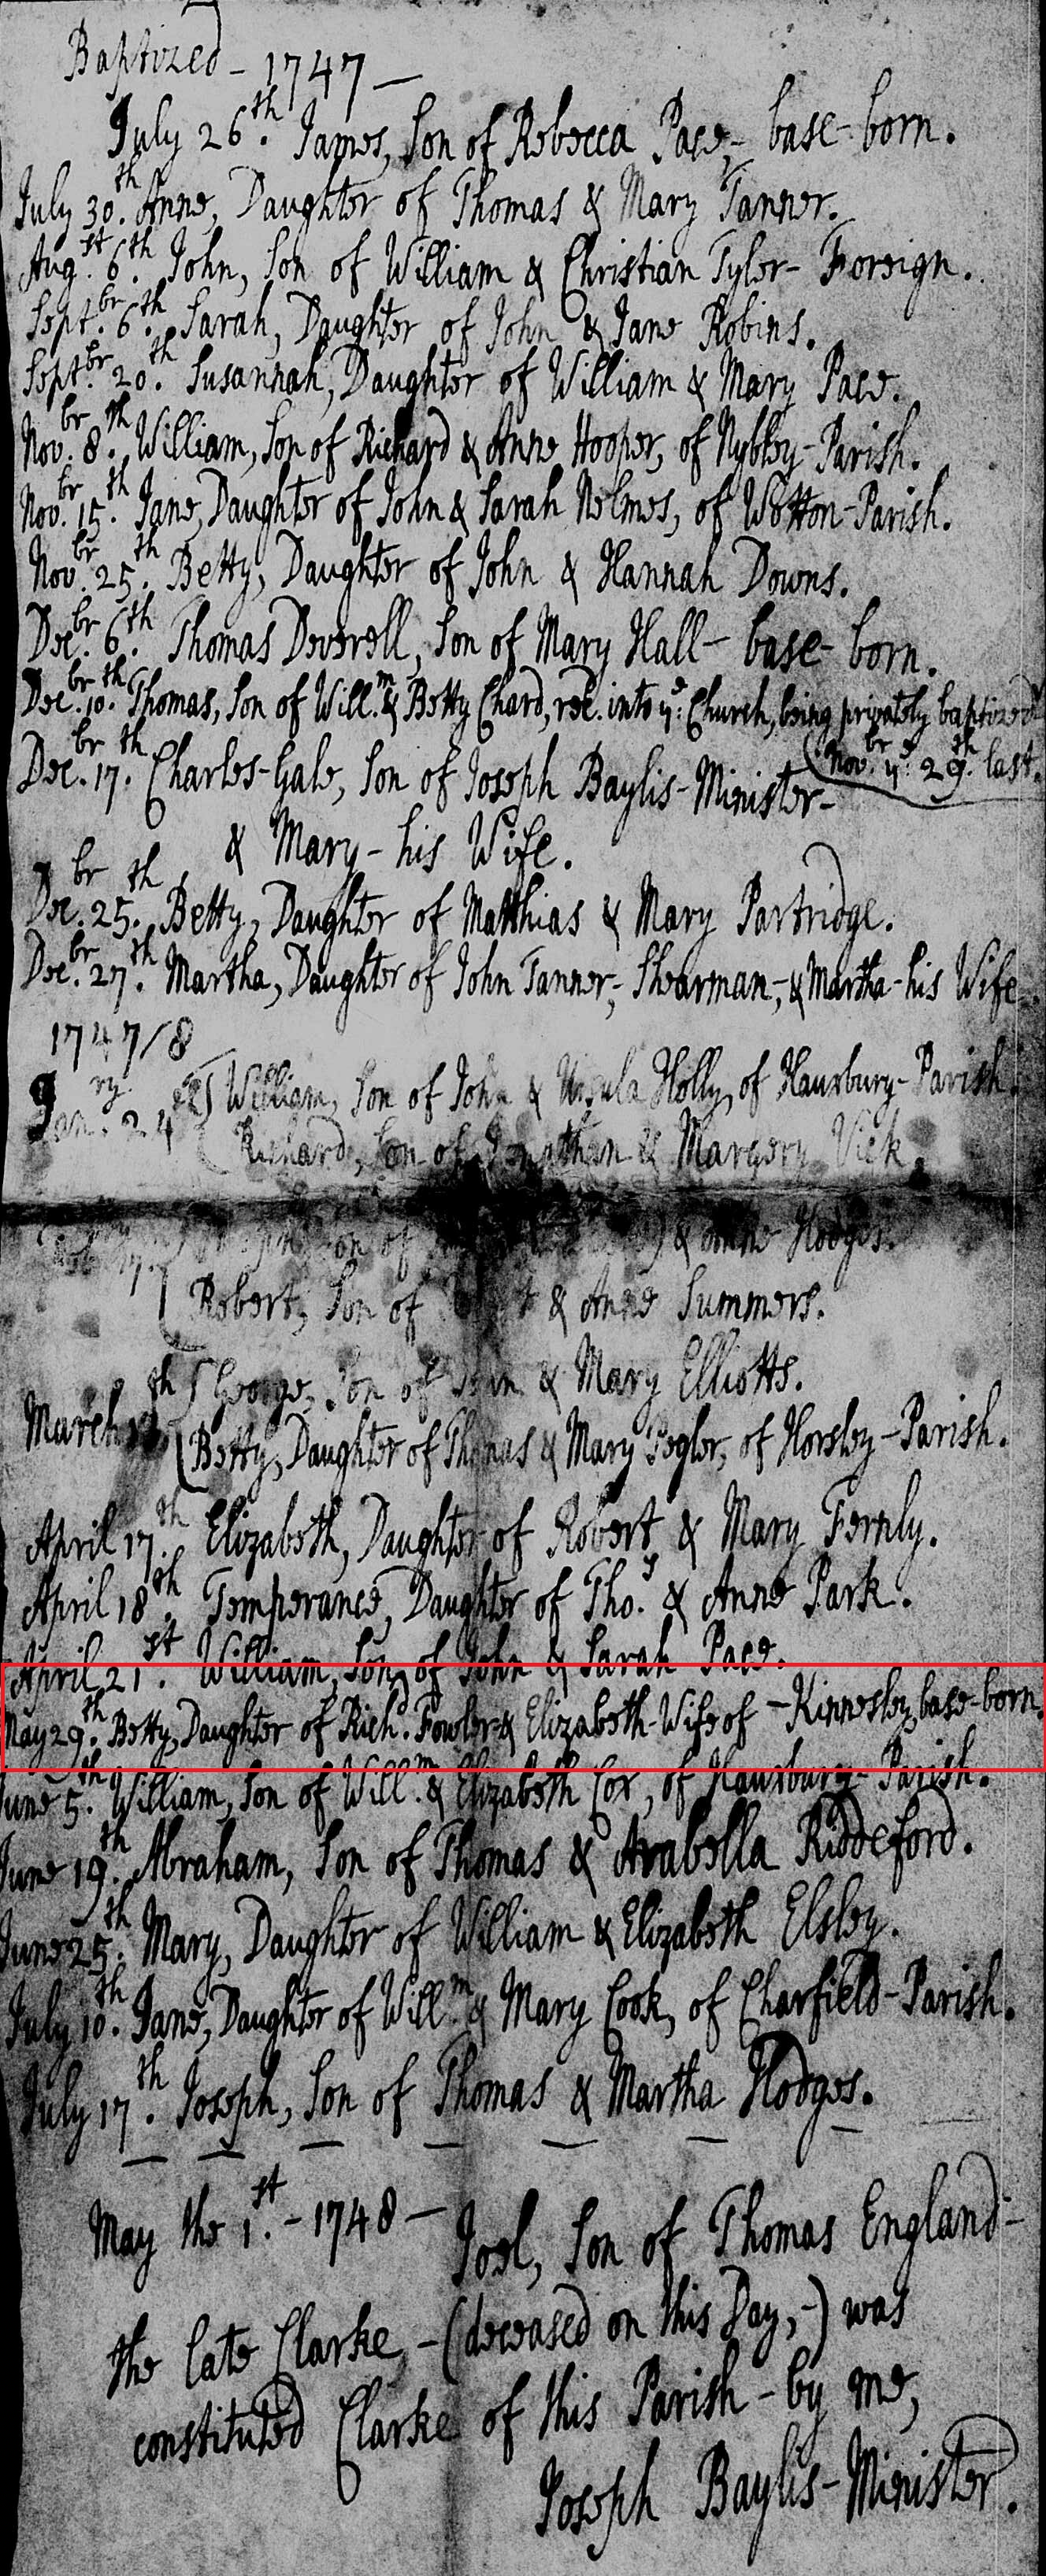 Baptized - 1747 -
July 26th. James, Son of Rebecca Pace, - base-born.
July 30th. Anne, Daughter of Thomas & Mary Tanner.
Augst. 6th. John, Son of William & Christian Tylor - Foreign.
Septbr. 6th. Sarah, Daughter of John & Jane Robins.
Septbr. 20th. Susannah, Daughter of William & Mary Pace.
Novbr. 8th. William, Son of Richard & Anne Hooper, of Nybley-Parish.
Novbr. 15th. Jane, Daughter of John & Sarah Nelmes, of Wotton-Parish.
Novbr. 25th. Betty, Daughter of John & Hannah Downs.
Decbr. 6th. Thomas Deverell, Son of Mary Hall - base-born.
Decbr. 10th. Thomas, Son of Willm. & Betty Chard, rec. into ye. Church, being privately baptized
(Novbr. ye. 29th. last.
Decbr. 17th. Charles-Gale, Son of Joseph Baylis-Minister-
& Mary - his Wife.
Decbr. 25th. Betty, Daughter of Matthias & Mary Partridge.
Decbr. 27th. Martha, Daughter of John Tanner, - Shearman, - & Martha - his Wife
1747/8
Janry. 24th { William, Son of John & Ursula Holly, of Hawsbury-Parish.
Richard, Son of Jonathan & Margery Vick.
17. Son of & Anne Hodges.
Robert, Son of & Anne Summers.
March th { George, Son of & Mary Elliotts.
Betty, Daughter of Thomas & Mary Pegler, of Horsley-Parish.
April 17th. Elizabeth, Daughter of Robert & Mary Fernly.
April 18th. Temperance, Daughter of Thos. & Anne Park.
April 21st. William, Son of John & Sarah Pace.
May 29th. Betty, Daughter of Richd. Fowler & Elizabeth-Wife of - Kinnesley, base-born.
June 5th. William, Son of Willm. & Elizabeth Cox, of Hawsbury-Parish.
June 19th. Abraham, Son of Thomas & Arabella Riddeford.
June 25th. Mary, Daughter of William & Elizabeth Elsley.
July 10th. Jane, Daughter of Willm. & Mary Cook, of Charfield-Parish.
July 17th. Joseph, Son of Thomas & Martha Hodges.
May the 1st. - 1748 - Joel, Son of Thomas England -
the late Clarke, - (deceased on this Day, -) was
constituted Clarke of this Parish - by me,
Joseph Baylis - Minister.